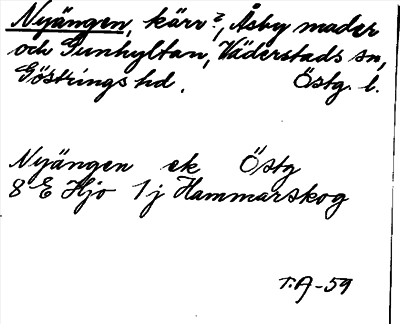 Nyängen, kärr?, Åsby mader
och Gunhyltan, Väderstads sn,
Göstrings hd. Östg. l.
Nyängen ek Östg
8 E Hjo 1 j Hammarskog
T.A-59